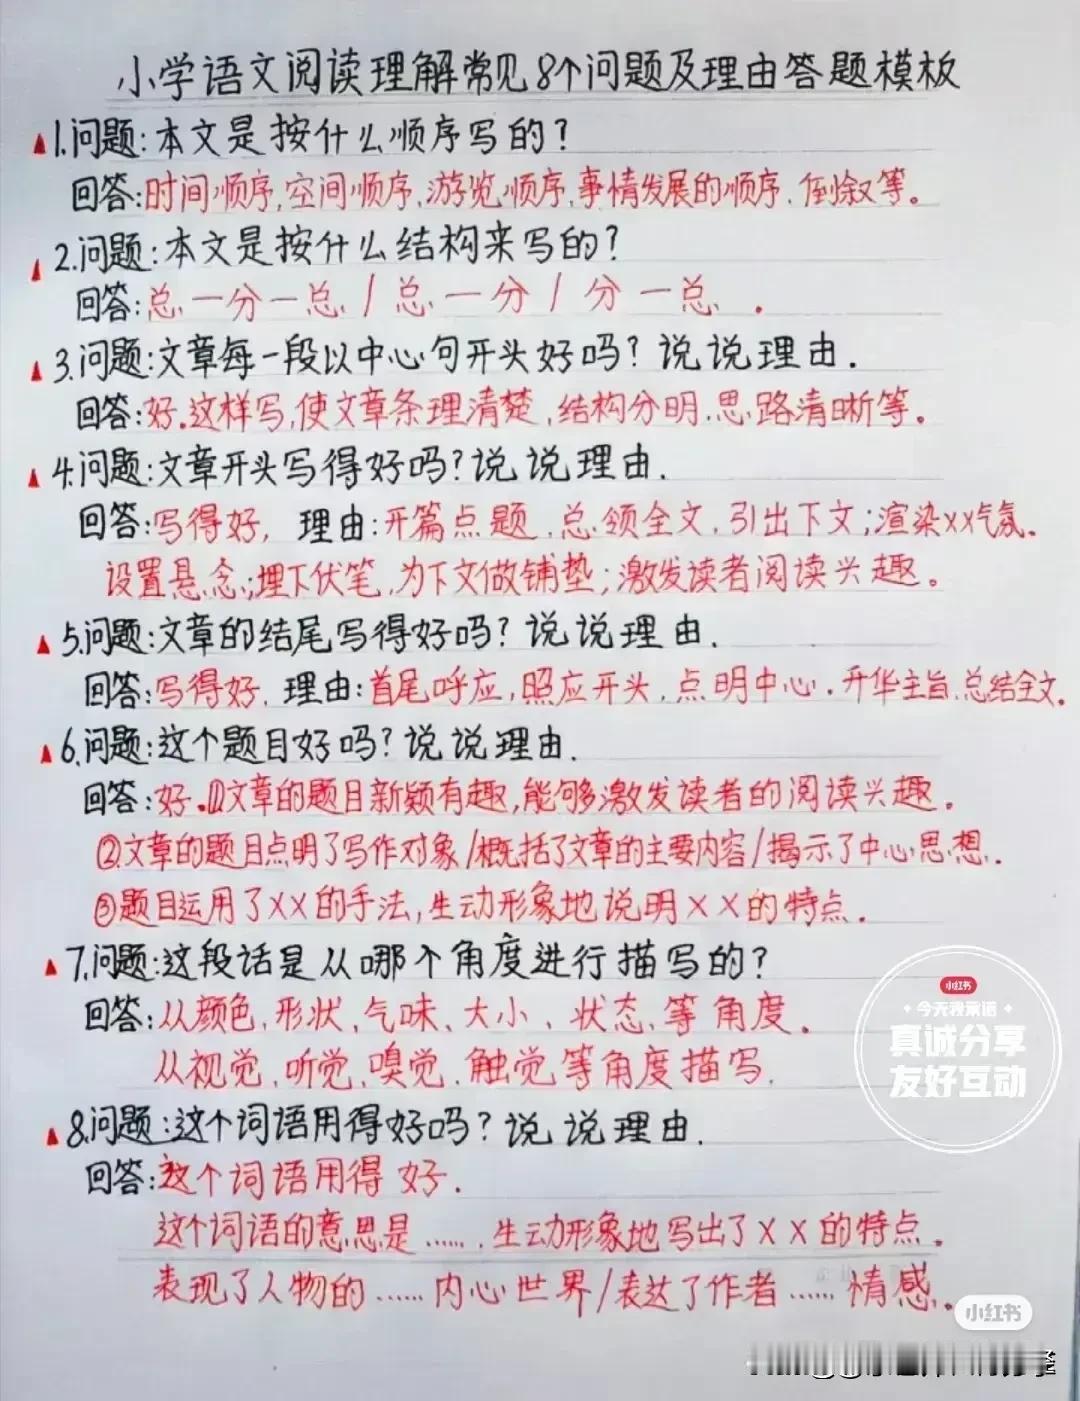 小学语文阅读理解常见8个问题及理由答题模板
1.问题:本文是按什么顺序写的?
回答:时间顺序,空间顺序,游览顺序,事情发展的顺序、倒叙等。
2.问题:本文是按什么结构来写的?
回答:总一分一总/总一分/分一总.
3.问题:文章每一段以中心句开头好吗?说说理由.
回答:好.这样写,使文章条理清楚,结构分明.思路清晰等。
4.问题:文章开头写得好吗?说说理由.
回答:写得好, 理由:开篇点题,总领全文,引出下文;渲染XX气氛.
设置悬念;埋下伏笔,为下文做铺垫;激发读者阅读兴趣。
5.问题:文章的结尾写得好吗?说说理由.
回答:写得好.理由:首尾呼应,照应开头,点明中心.升华主旨.总结全文.
6.问题:这个题目好吗?说说理由.
回答:好.①文章的题目新颖有趣,能够激发读者的阅读兴趣.
②文章的题目点明了写作对象/概括了文章的主要内容/揭示了中心思想.
③题目运用了XX的手法,生动形象地说明XX的特点.
7.问题:这段话是从哪个角度进行描写的?
回答:从颜色,形状,气味、大小、状态,等角度.
从视觉,听觉,嗅觉.触觉等角度描写.
8.问题:这个词语用得好吗?说说理由.
回答:这个词语用得好.
这个词语的意思是……,生动形象地写出了XX的特点.
表现了人物的……内心世界/表达了作者……情感.
小红书
今天我承诺
真诚分享
友好互动
小红书